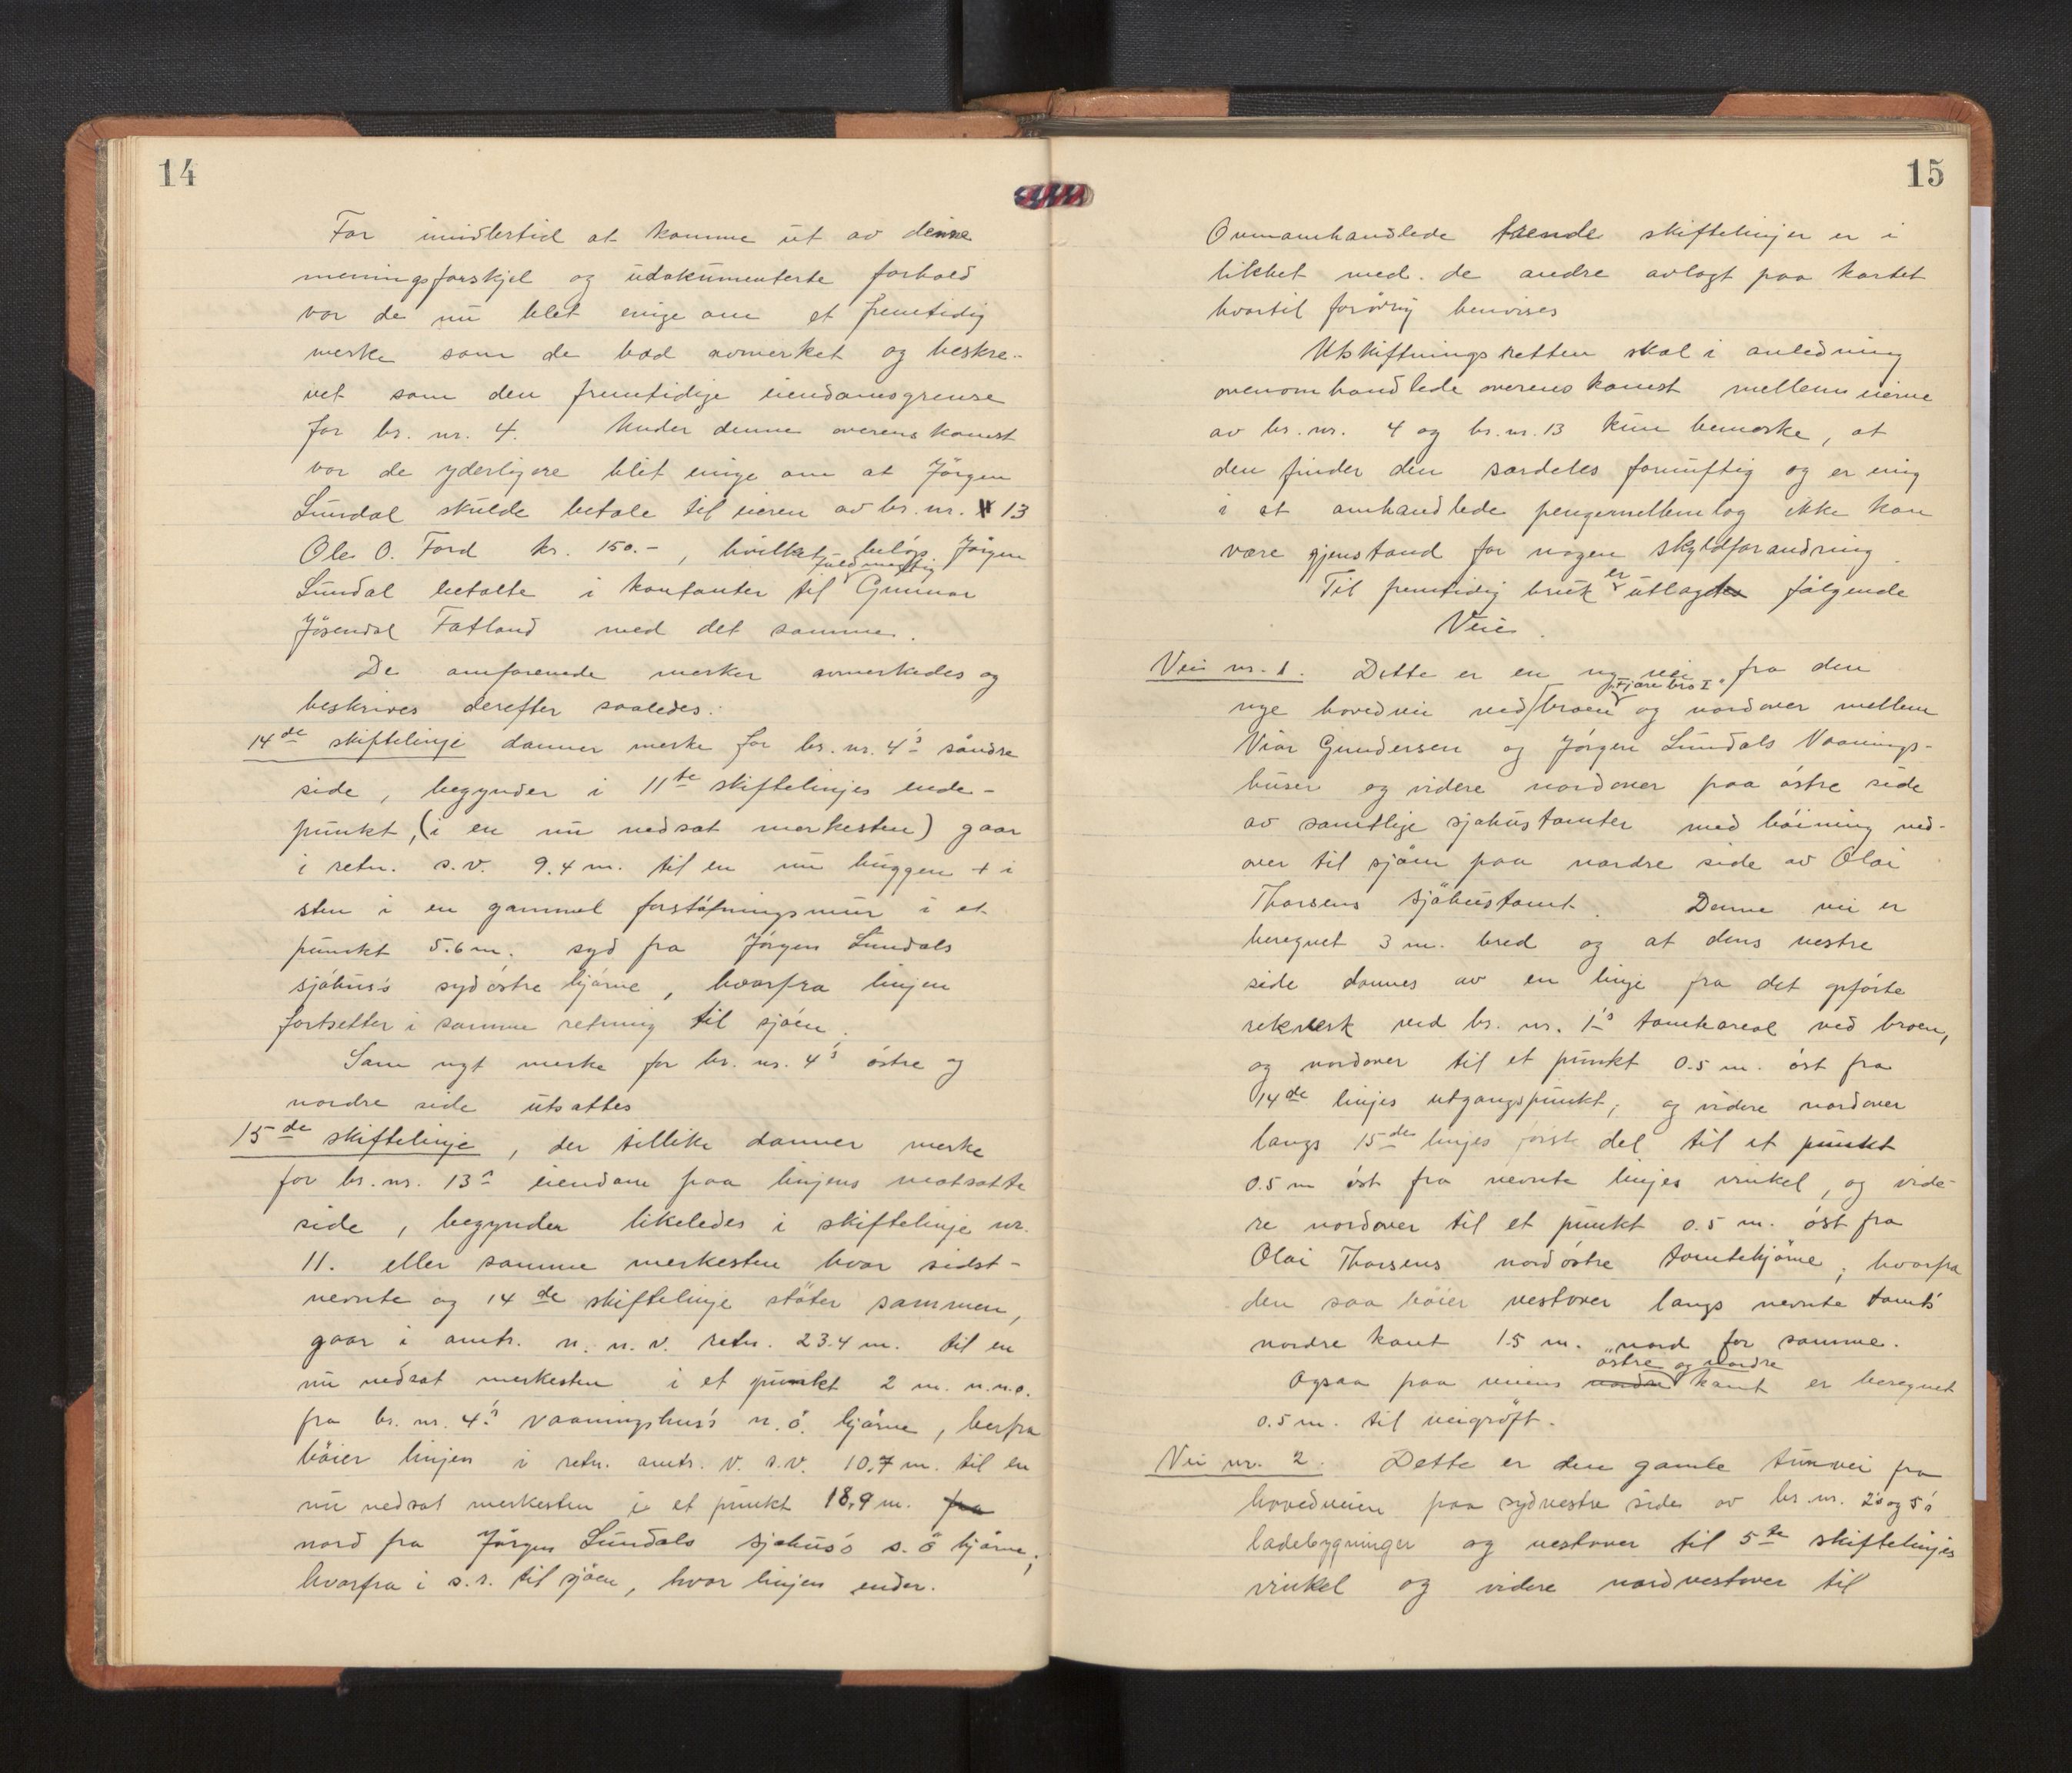 14
For imidlertid at komme ut av denne
meningsforskjel og udokumenterte forhold
var de nu blet enige om et fremtidig
merke som de bad avmerket og beskre-
vet som den fremtidige eiendomsgrense
for br. nr. 4. Under denne overenskomst
var de yderligere blit enige om at Jörgen
Lundal skulde betale til eieren av br. nr. 13
Ole O. Ford kr. 150.-, hvilket beløp Jörgen
Lundal betalte i kontanter til fuldmegtig Gunnar
Jösendal Fatland med det samme.
De omforenede merker avmerkedes og
beskrives derefter saaledes:
14de skiftelinje danner merke for br. nr. 4's söndre
side, begynder i 11te skiftelinjes ende-
punkt, (i en nu nedsat merkesten) gaar
i retn. s.v. 9.4 m. til en nu huggen + i
sten i en gammel forstøtningsmur i et
punkt 5.6 m. syd fra Jörgen Lundals
sjöhus's sydöstre hjörne, hvorfra linjen
fortsetter i samme retning til sjöen.
Som nyt merke for br. nr. 4's östre og
nordre side utsattes
15de skiftelinje, der tillike danner merke
for br. nr. 13s eiendom paa linjens motsatte
side, begynder likeledes i skiftelinje nr.
11. eller samme merkesten hvor sidst-
nevnte og 14de skiftelinje stöter sammen,
gaar i omtr. n. n. v. retn. 23.4 m. til en
nu nedsat merkesten i et punkt 2 m. n.n.o.
fra br. nr. 4's vaaningshus's n. ö. hjörne, herfra
böier linjen i retn. omtr. v. s.v. 10,7 m. til en
nu nedsat merkesten i et punkt 18,9 m. fra
nord fra Jörgen Lundals sjøhus's s. ö hjörne;
hvorfra i s. r. til sjöen, hvor linjen ender.
15
Ovenomhandlede skiftelinjer er i
likhet med de andre avlagt paa kartet
hvortil forövrig henvises
Utskiftningsretten skal i anledning
ovenomhandlede overenskomst mellem eierne
av br. nr. 4 og br. nr. 13 kun bemerke, at
den finder den særdeles fornuftig og er enig
i at omhandlede pengemellemlag ikke kan
være gjenstand for nogen skyldforandring.
Til fremtidig bruk er utlagt følgende
Veie.
Vei nr. 1. Dette er en ny vei fra den
nye hovedvei ved broen "Fjære bro I" og nordover mellem
Gundersen og Jörgen Lundals Vaanings-
huser og videre nordover paa östre side
av samtlige sjøhustomter med böining ned-
over til sjöen paa nordre side av Olai
Thorsens sjöhustomt. Denne vei er
beregnet 3 m. bred og at dens vestre
side dannes av en linje fra det opförte
rekverk ved br. nr. 1's tomteareal ved broen,
og nordover til et punkt 0.5 m. öst fra
14de linjes utgangspunkt; og videre nordover
langs 15des linjes første del til et punkt
0.5 m öst fra nevnte linjes vinkel, og vide-
re nordover til et punkt 0.5 m. öst fra
Olai Thorsens nordöstre tomtehjörne, hvorfra
den saa böier vestover langs nevnte tomts
nordre kant 1.5 m. nord for samme.
Ogsaa paa veiens nordre östre og nordre kant er beregnet
0.5 m. til veigröft.
Vei nr. 2. Dette er den gamle tunvei fra
hovedveien paa sydvestre side av br. nr. 2's og 5's
ladebygninger og vestover til 5te skiftelinjes
vinkel og videre nordvestover til